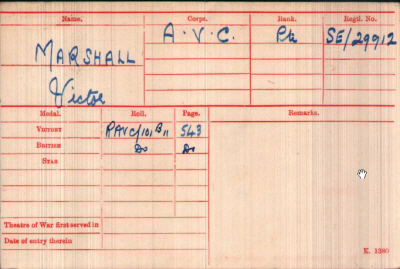 Name. Corps. Rank. Regtl. No.
MARSHALL A.V.C. Pte SE/29912
Victor
Medal. Roll. Page. Remarks.
VICTORY RAVC/101 B11 543
BRITISH Do Do
STAR
Theatre of War first served in
Date of entry therein
K. 1380